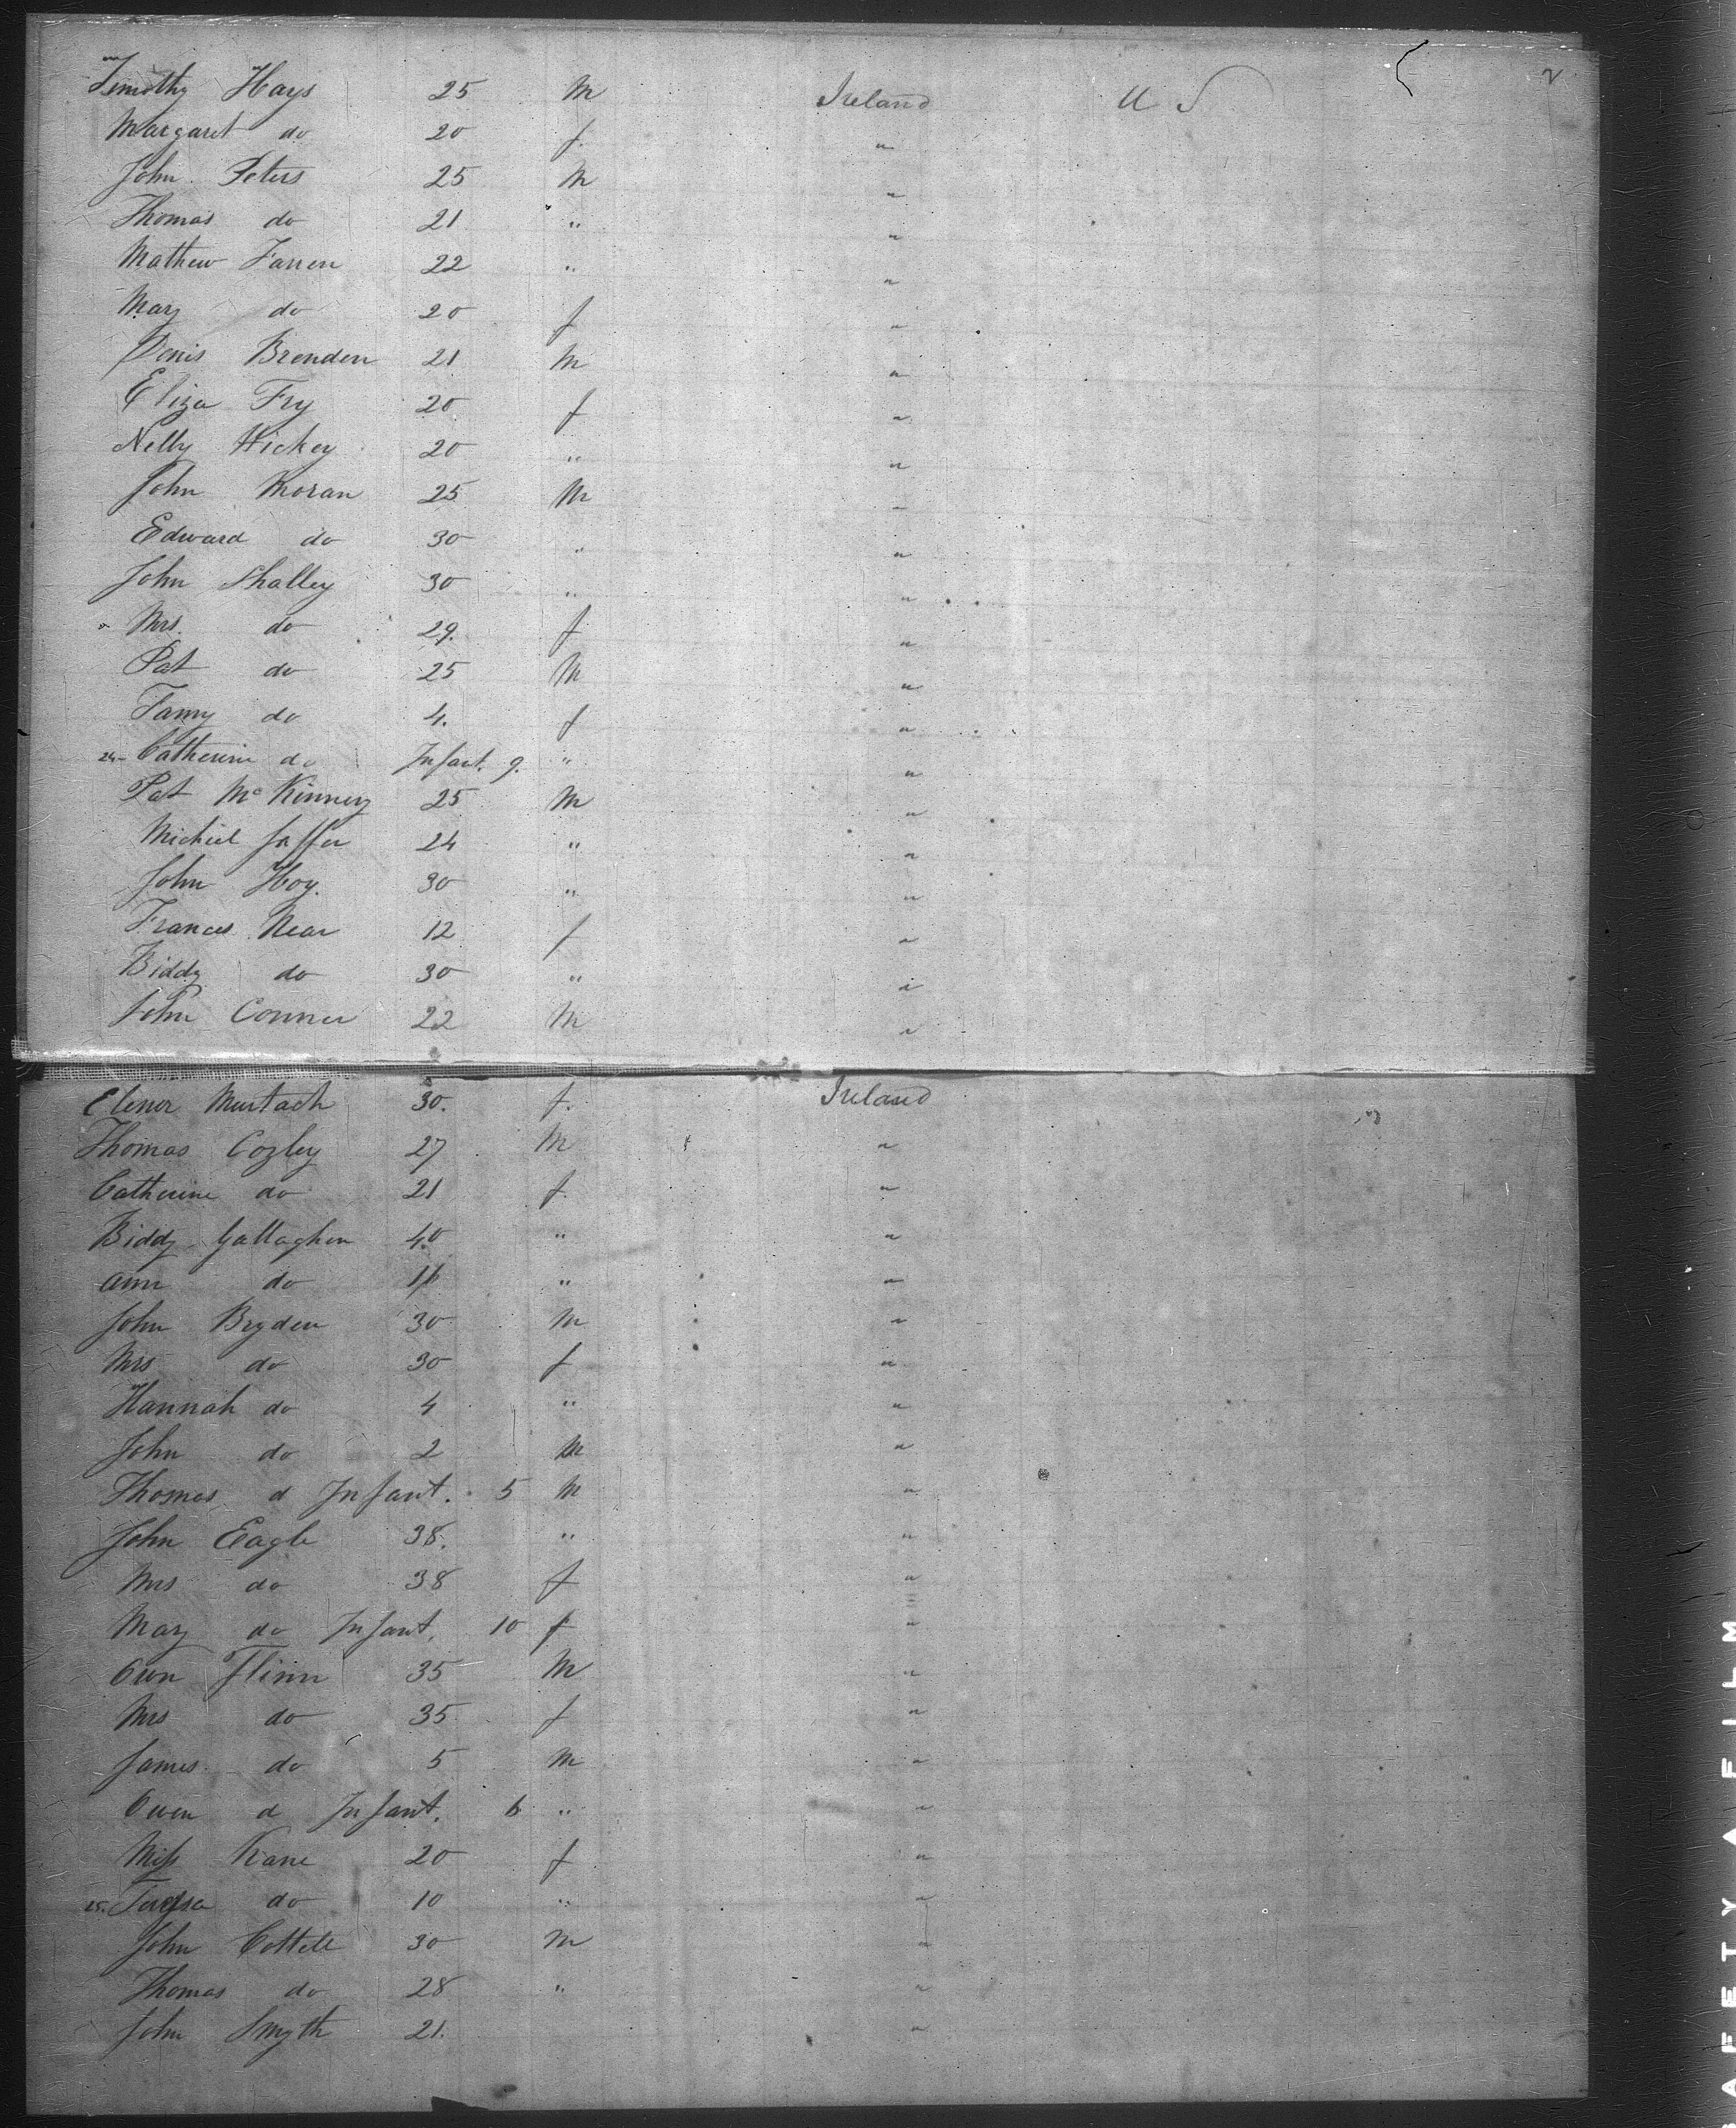 2
Timothy Hays 25 M Ireland U S
Margaret do 20 f. "
John Peters 25 M "
Thomas do 21 " "
Mathew Farren 22 " "
Mary do 20 f "
Denis Brenden 21 M "
Eliza Fry 20 f "
Nelly Hickey 20 " "
John Moran 25 M "
Edward do 30 " "
John Shalley 30 " "
Mrs. do 29. f "
Pat do 25 M "
Fanny do 4. f "
24- Catherine do Infant. 9. " "
Pat McKinney 25 M "
Michiel 24 " "
John Hoy. 30 " "
Frances Near 12 f "
Biddy do 30 " "
John Conner 22 M "
Elenor Murtach 30. f. Ireland
Thomas Cogley 27 M "
Catherine do 21 f "
Biddy Gallagher 40 " "
Ann do 16 " "
John Bryden 30 M "
Mrs do 30 f "
Hannah do 4 " "
John do 2 M "
Thomas d Infant. 5 M "
John Eagle 38. " "
Mrs do 38 f "
Mary do Infant. 10 f "
Own Flinn 35 M "
Mrs do 35 f "
James do 5 M "
Owen d Infant. 6 " "
Miss Kane 20 f "
25. Teressa do 10 " "
John Cottell 30 M "
Thomas do 28 " "
John Smyth 21. "
AFETY AFILM